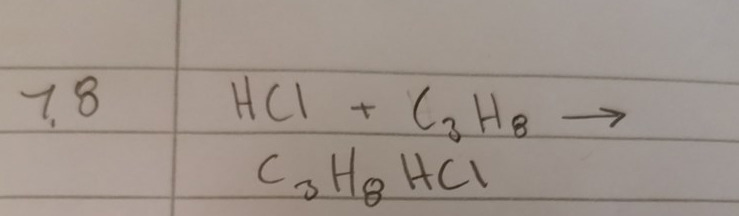 7.8 HCl + C₃H₈ →
C₃H₈HCl